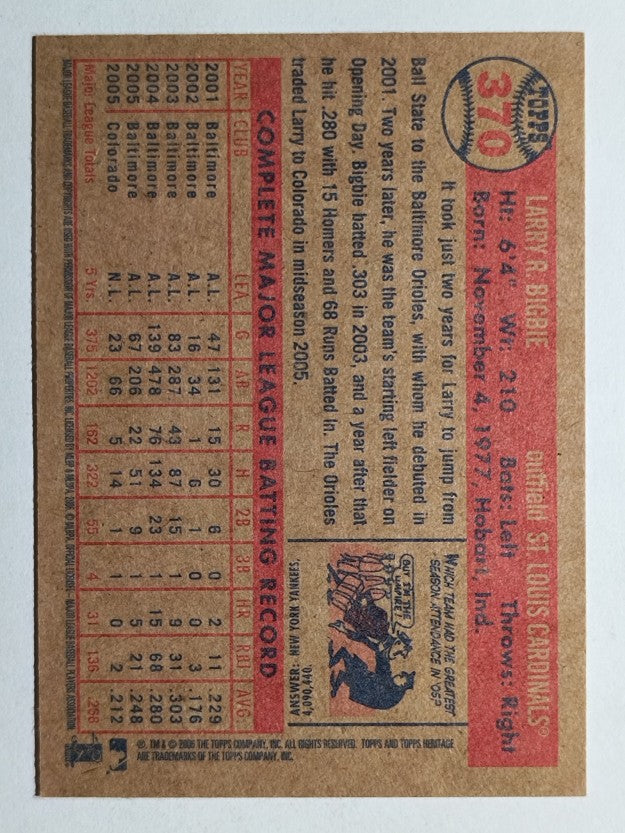 TOPPS
370
LARRY R. BIGBIE outfield ST. LOUIS CARDINALS®
Ht: 6'4" Wt: 210 Bats: Left Throws: Right
Born: November 4, 1977, Hobart, Ind.
It took just two years for Larry to jump from
Ball State to the Baltimore Orioles, with whom he debuted in
2001. Two years later, he was the team's starting left fielder on
Opening Day. Bigbie batted .303 in 2003, and a year after that
he hit .280 with 15 Homers and 68 Runs Batted In. The Orioles
traded Larry to Colorado in midseason 2005.
WHICH TEAM HAD THE GREATEST
SEASON ATTENDANCE IN '05?
OUT IN THE
ANSWER: NEW YORK YANKEES,
4,090,440.
COMPLETE MAJOR LEAGUE BATTING RECORD
YEAR CLUB LEA G AB R H 2B 3B HR RBI AVG.
2001 Baltimore A.L. 47 131 15 30 6 0 2 11 .229
2002 Baltimore A.L. 16 34 1 6 1 0 0 3 .176
2003 Baltimore A.L. 83 287 43 87 15 1 9 31 .303
2004 Baltimore A.L. 139 478 76 134 23 1 15 68 .280
2005 Baltimore A.L. 67 206 22 51 9 1 5 21 .248
2005 Colorado N.L. 23 66 5 14 1 1 0 2 .212
Major League Totals 5 Yrs. 375 1202 162 322 55 4 31 136 .268
®, TM & © 2006 THE TOPPS COMPANY, INC. ALL RIGHTS RESERVED. TOPPS AND TOPPS HERITAGE
ARE TRADEMARKS OF THE TOPPS COMPANY, INC.